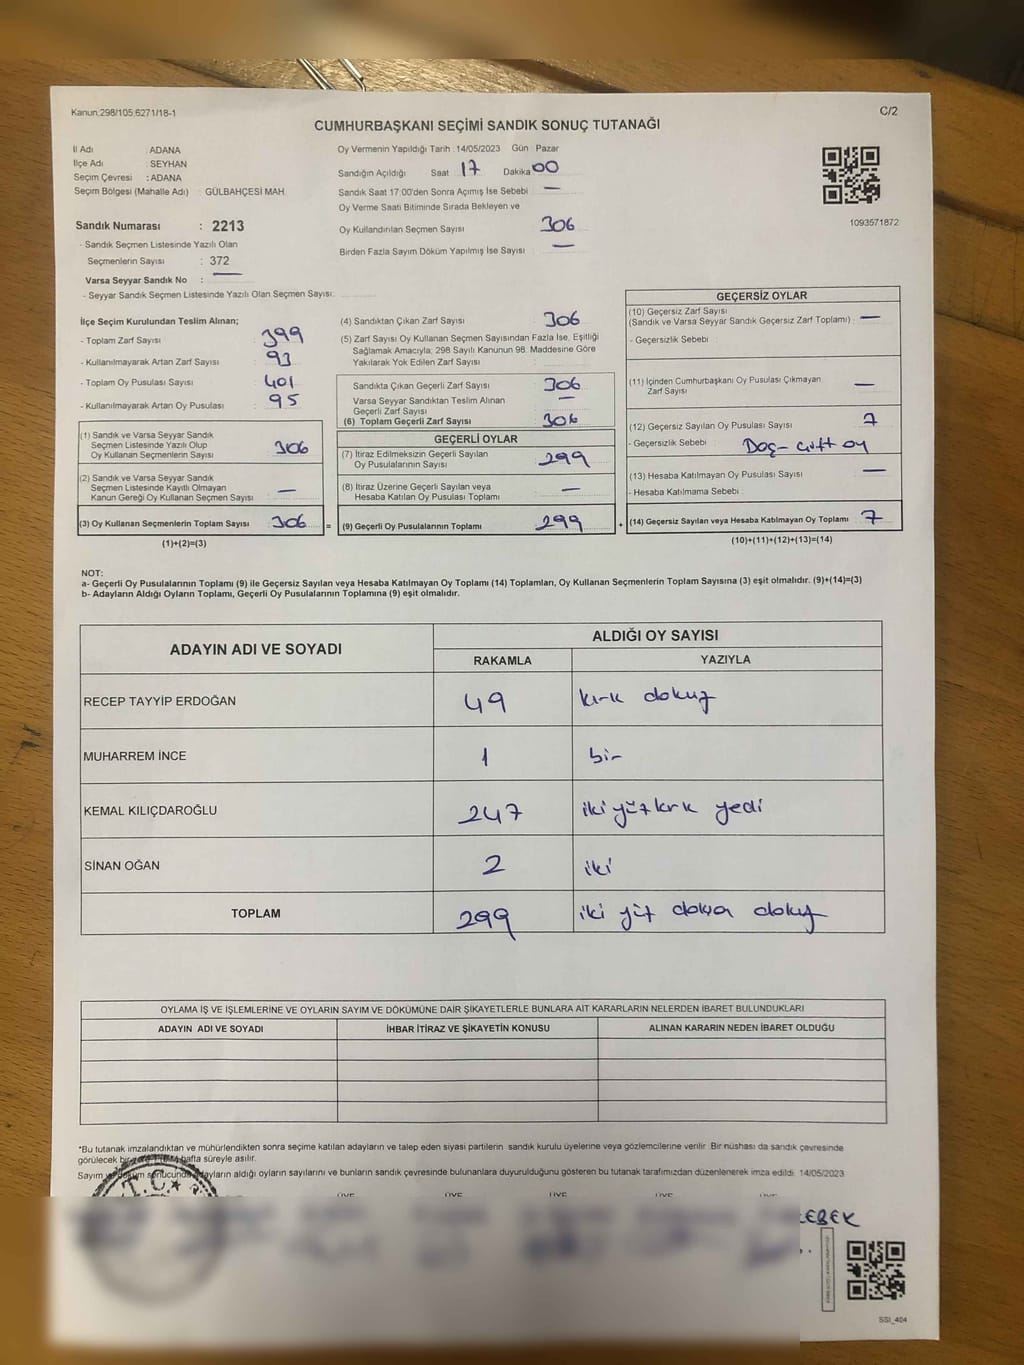 Kanun:298/105,6271/18-1
C/2
CUMHURBAŞKANI SEÇİMİ SANDIK SONUÇ TUTANAĞI
İl Adı : ADANA
İlçe Adı : SEYHAN
Seçim Çevresi : ADANA
Seçim Bölgesi (Mahalle Adı) : GÜLBAHÇESİ MAH.
Oy Vermenin Yapıldığı Tarih :14/05/2023 Gün : Pazar
Sandığın Açıldığı Saat 17 Dakika 00
Sandık Saat 17:00'den Sonra Açımış İse Sebebi —
Oy Verme Saati Bitiminde Sırada Bekleyen ve
Oy Kullandırılan Seçmen Sayısı 306
Birden Fazla Sayım Döküm Yapılmış İse Sayısı —
1093571872
Sandık Numarası : 2213
- Sandık Seçmen Listesinde Yazılı Olan
Seçmenlerin Sayısı : 372
Varsa Seyyar Sandık No : —
- Seyyar Sandık Seçmen Listesinde Yazılı Olan Seçmen Sayısı:
İlçe Seçim Kurulundan Teslim Alınan;
- Toplam Zarf Sayısı 399
- Kullanılmayarak Artan Zarf Sayısı 93
- Toplam Oy Pusulası Sayısı 401
- Kullanılmayarak Artan Oy Pusulası 95
(1) Sandık ve Varsa Seyyar Sandık
Seçmen Listesinde Yazılı Olup
Oy Kullanan Seçmenlerin Sayısı 306
(2) Sandık ve Varsa Seyyar Sandık
Seçmen Listesinde Kayıtlı Olmayan
Kanun Gereği Oy Kullanan Seçmen Sayısı —
(3) Oy Kullanan Seçmenlerin Toplam Sayısı 306 =
(1)+(2)=(3)
(4) Sandıktan Çıkan Zarf Sayısı 306
(5) Zarf Sayısı Oy Kullanan Seçmen Sayısından Fazla İse, Eşitliği
Sağlamak Amacıyla; 298 Sayılı Kanunun 98. Maddesine Göre
Yakılarak Yok Edilen Zarf Sayısı
Sandıkta Çıkan Geçerli Zarf Sayısı 306
Varsa Seyyar Sandıktan Teslim Alınan
Geçerli Zarf Sayısı —
(6) Toplam Geçerli Zarf Sayısı 306
GEÇERLİ OYLAR
(7) İtiraz Edilmeksizin Geçerli Sayılan
Oy Pusulasının Sayısı 299
(8) İtiraz Üzerine Geçerli Sayılan veya
Hesaba Katılan Oy Pusulası Toplamı —
(9) Geçerli Oy Pusulalarının Toplamı 299 +
GEÇERSİZ OYLAR
(10) Geçersiz Zarf Sayısı
(Sandık ve Varsa Seyyar Sandık Geçersiz Zarf Toplamı) —
- Geçersizlik Sebebi :
(11) İçinden Cumhurbaşkanı Oy Pusulası Çıkmayan
Zarf Sayısı —
(12) Geçersiz Sayılan Oy Pusulası Sayısı 7
- Geçersizlik Sebebi : çift oy
(13) Hesaba Katılmayan Oy Pusulası Sayısı —
- Hesaba Katılmama Sebebi :
(14) Geçersiz Sayılan veya Hesaba Katılmayan Oy Toplamı 7
(10)+(11)+(12)+(13)=(14)
NOT:
a- Geçerli Oy Pusulalarının Toplamı (9) ile Geçersiz Sayılan veya Hesaba Katılmayan Oy Toplamı (14) Toplamları, Oy Kullanan Seçmenlerin Toplam Sayısına (3) eşit olmalıdır. (9)+(14)=(3)
b- Adayların Aldığı Oyların Toplamı, Geçerli Oy Pusulalarının Toplamına (9) eşit olmalıdır.
ADAYIN ADI VE SOYADI ALDIĞI OY SAYISI
RAKAMLA YAZIYLA
RECEP TAYYİP ERDOĞAN 49 kırk dokuz
MUHARREM İNCE 1 bir
KEMAL KILIÇDAROĞLU 247 iki yüz kırk yedi
SİNAN OĞAN 2 iki
TOPLAM 299 iki yüz doksan dokuz
OYLAMA İŞ VE İŞLEMLERİNE VE OYLARIN SAYIM VE DÖKÜMÜNE DAİR ŞİKAYETLERLE BUNLARA AİT KARARLARIN NELERDEN İBARET BULUNDUKLARI
ADAYIN ADI VE SOYADI İHBAR İTİRAZ VE ŞİKAYETİN KONUSU ALINAN KARARIN NEDEN İBARET OLDUĞU
*Bu tutanak imzalandıktan ve mühürlendikten sonra seçime katılan adayların ve talep eden siyasi partilerin sandık kurulu üyelerine veya gözlemcilerine verilir. Bir nüshası da sandık çevresinde
görülecek bir hafta süreyle asılır.
Sayım ve döküm sonucunda adayların aldığı oyların sayılarını ve bunların sandık çevresinde bulunanlara duyurulduğunu gösteren bu tutanak tarafımızdan düzenlenerek imza edildi. 14/05/2023
T.C.
ÜYE ÜYE ÜYE ÜYE ÜYE
EBEK
SSI_404